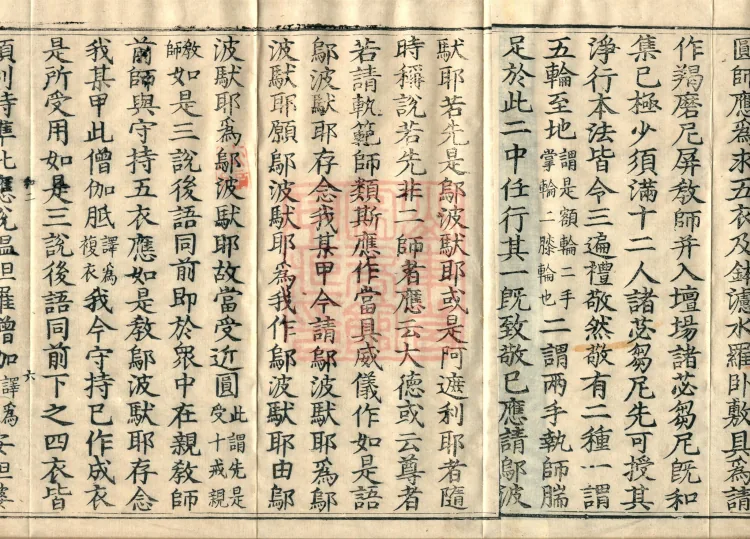 圓師應爲求五衣及鉢濾水羅卧敷具爲請
作羯磨尼屏教師并入壇場諸苾芻尼既和
集已極少須滿十二人諸苾芻尼先可授其
淨行本法皆令三遍禮敬然敬有二種一謂
五輪至地謂是額輪二手掌輪二膝輪也二謂兩手執師腨
足於此二中任行其一既致敬已應請鄔波
馱耶若先是鄔波馱耶或是阿遮利耶者隨
時稱說若先非二師者應云大德或云尊者
若請軌範師類斯應作當具威儀作如是語
鄔波馱耶存念我某甲今請鄔波馱耶爲鄔
波馱耶願鄔波馱耶爲我作鄔波馱耶由鄔
波馱耶爲鄔波馱耶故當受近圓此謂先是受十戒親
教師如是三說後語同前即於眾中在親教師
前師與守持五衣應如是教鄔波馱耶存念
我某甲此僧伽胝譯爲複衣我今守持已作成衣
六
是所受用如是三說後語同前下之四衣皆
須別持準此應說嗢怛羅僧伽譯爲安怛婁